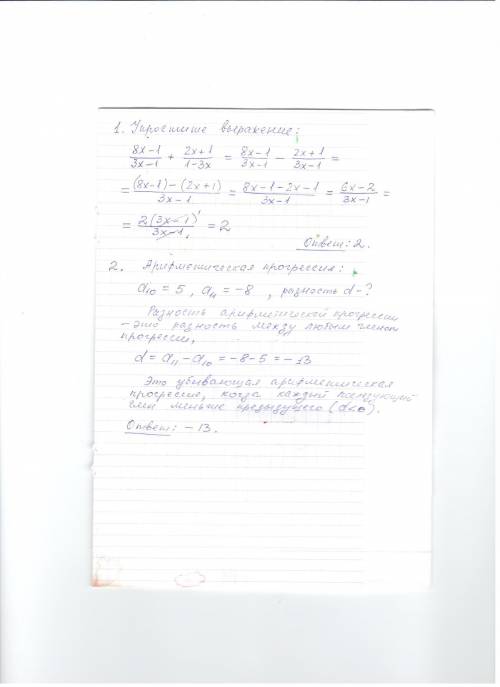 1. Упростите выражение:
(8x-1)/(3x-1) + (2x+1)/(1-3x) = (8x-1)/(3x-1) - (2x+1)/(3x-1) =
= ((8x-1)-(2x+1))/(3x-1) = (8x-1-2x-1)/(3x-1) = (6x-2)/(3x-1) =
= 2(3x-1)/(3x-1) = 2
Ответ: 2.
2. Арифметическая прогрессия:
a₁₀ = 5, a₁₁ = -8, разность d-?
Разность арифметической прогрессии
- это разность между любым членом
прогрессии,
d = a₁₁ - a₁₀ = -8-5 = -13
Это убывающая арифметическая
прогрессия, когда каждый последующий
член меньше предыдущего (d<0).
Ответ: -13.